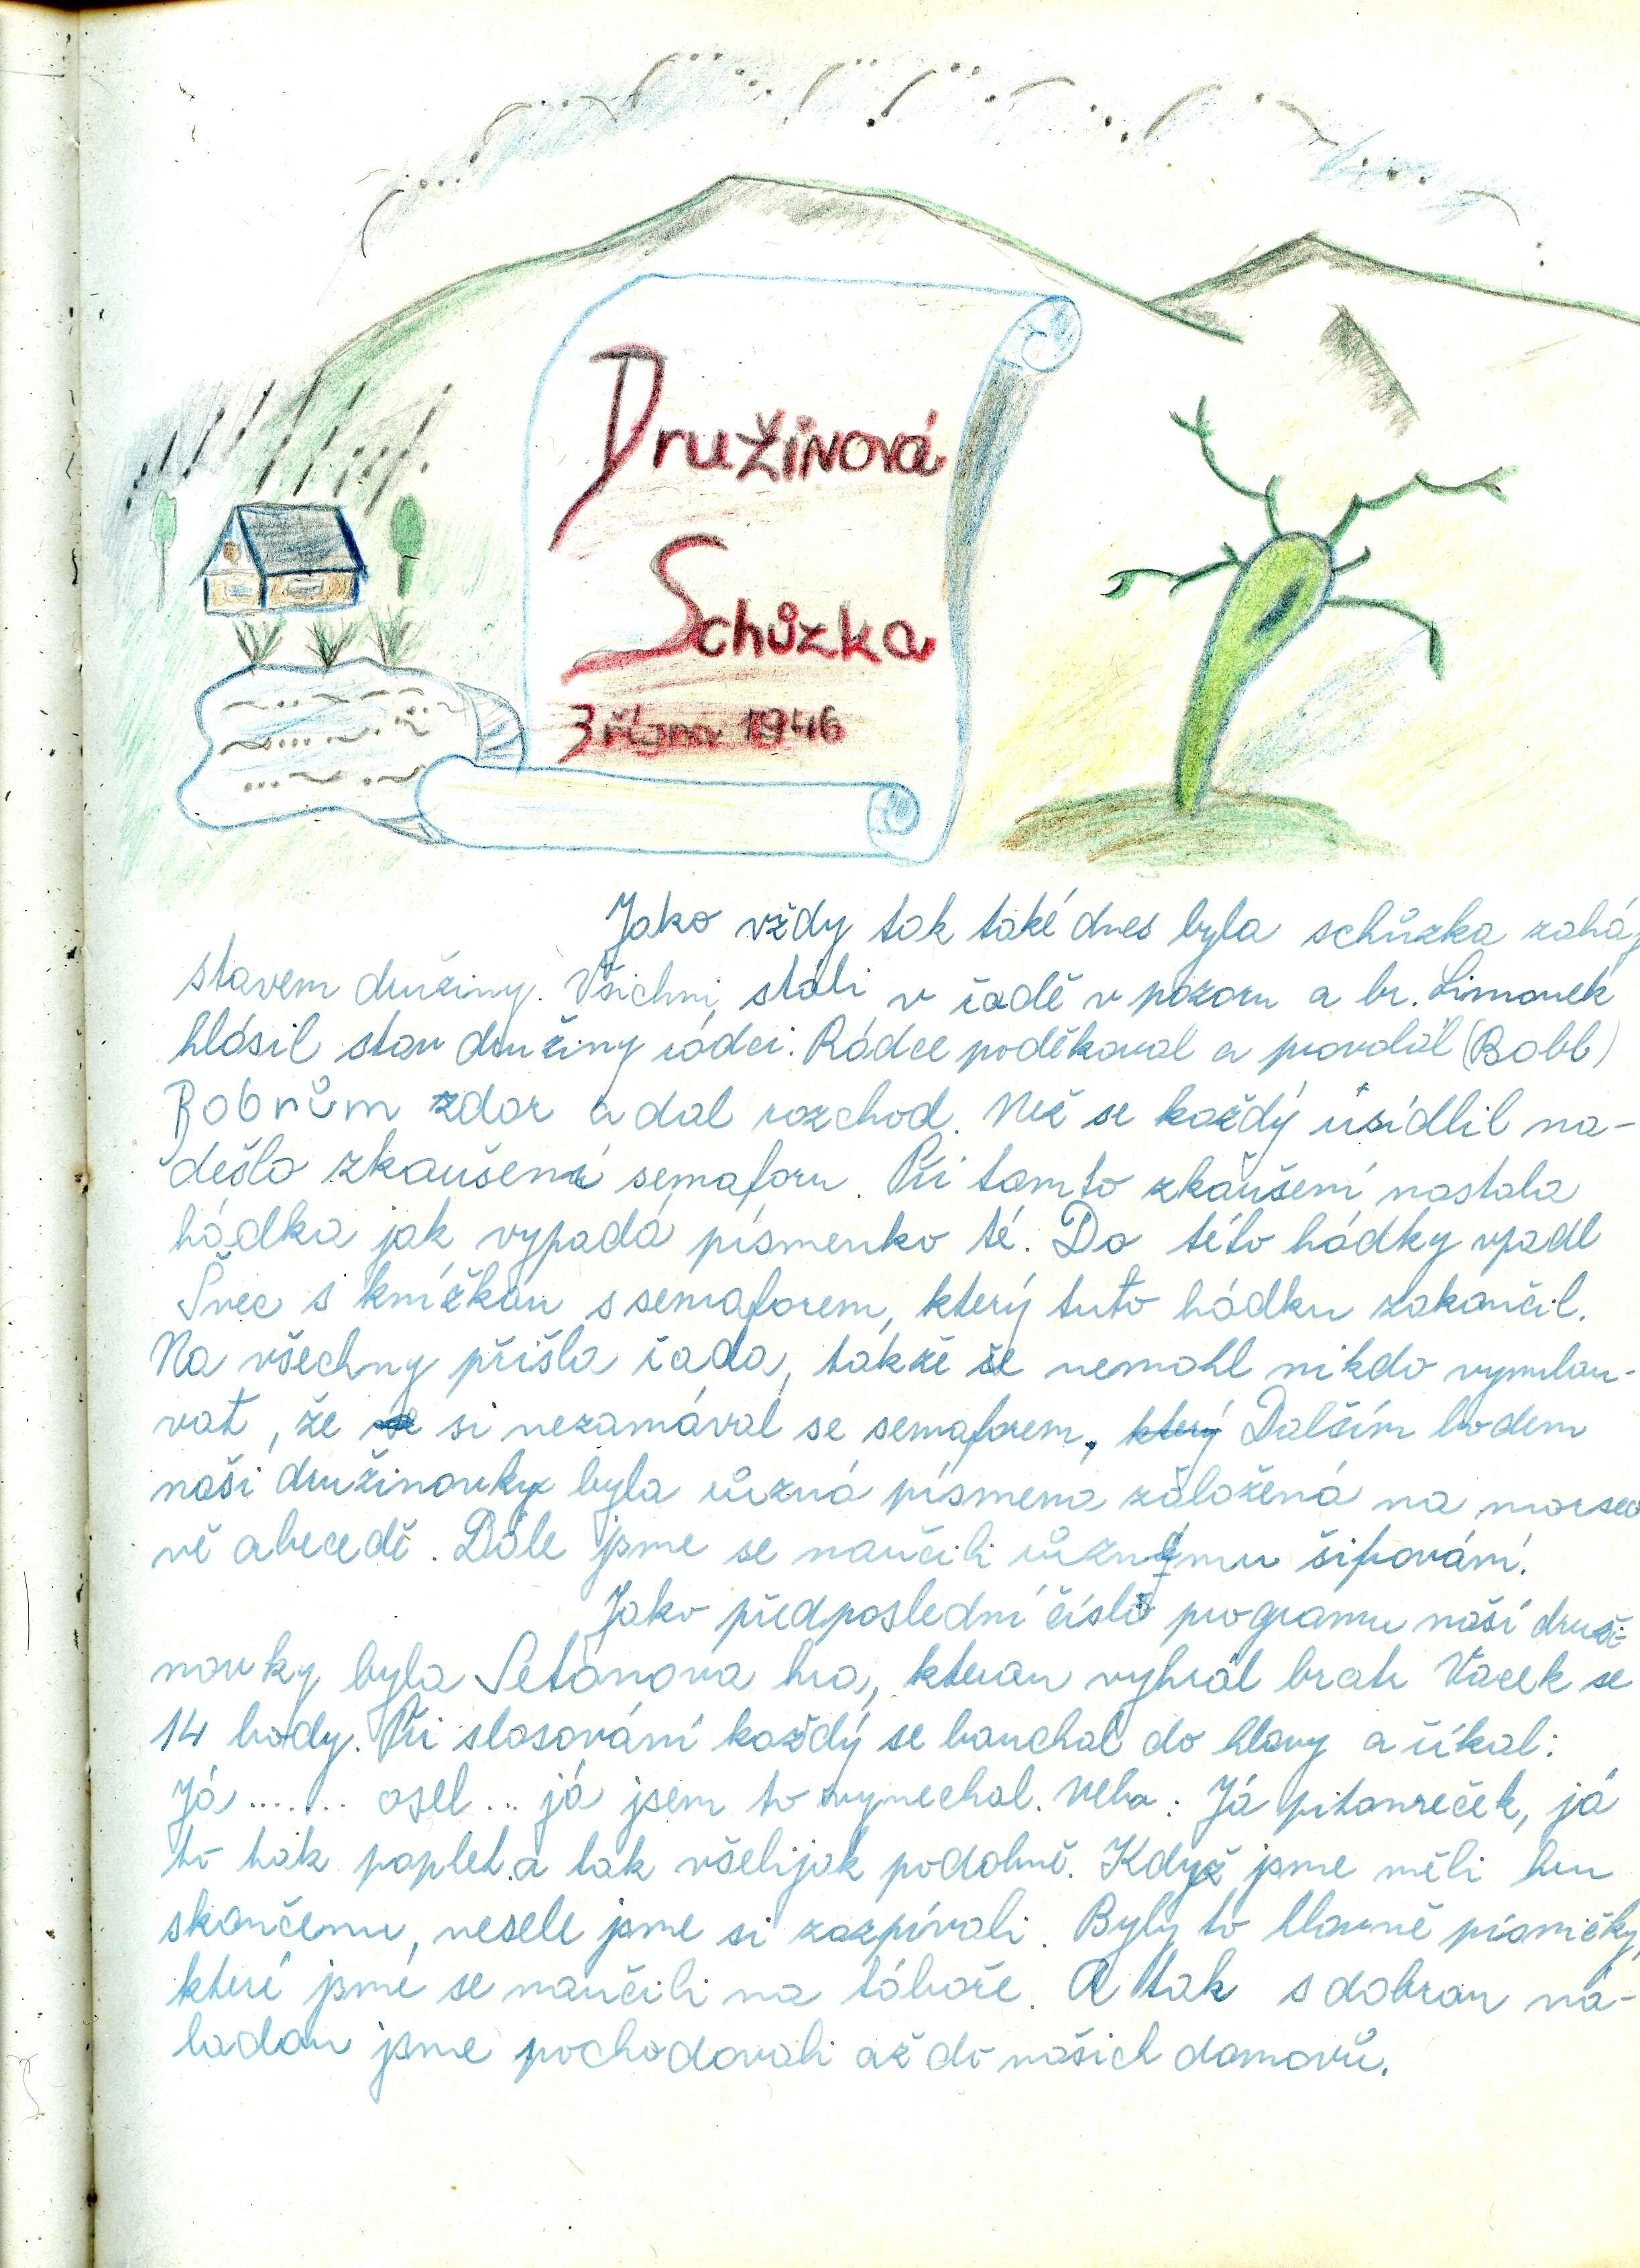 Družinová
Schůzka
3 října 1946
Jako vždy tak také dnes byla schůzka zaháj
stavem družiny. Všichni stáli v řadě v pozoru a br. Limonek
hlásil stav družiny rádci. Rádce poděkoval a provolál (Bobb)
Bobrům zdar a dal rozchod. Než se každý usídlil na-
dešlo zkoušení semaforu. Při tomto zkoušení nastala
hádka jak vypadá písmenko té. Do této hádky vpadl
Švec s knížkou s semaforem, který tuto hádku zakončil.
Na všechny přišla řada, takže se nemohl nikdo vymlou-
vat, že si nezamával se semaforem. který Dalším bodem
naší družinovky byla různá písmena založená na morseo
vě abecedě. Dále jsme se naučili různému šifrování.
Jako předposlední číslo programu naší druži-
novky byla Setonova hra, kterou vyhrál bratr Vacek se
14 body. Při slosování každý se bouchal do hlavy a říkal:
Já ....... osel ... já jsem to vynechal. Nebo: Já pitomeček, já
to tak poplet a tak všelijak podobně. Když jsme měli hru
skončenu, vesele jsme si zazpívali. Byly to hlavně písničky,
které jsme se naučili na táboře. A tak s dobrou ná-
ladou jsme pochodovali až do našich domovů.